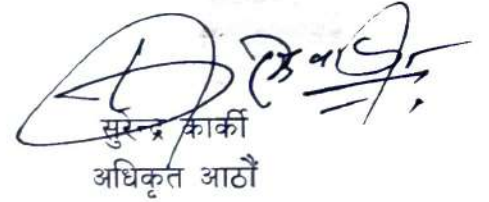 सुरेन्द्र कार्की
अधिकृत आठौं